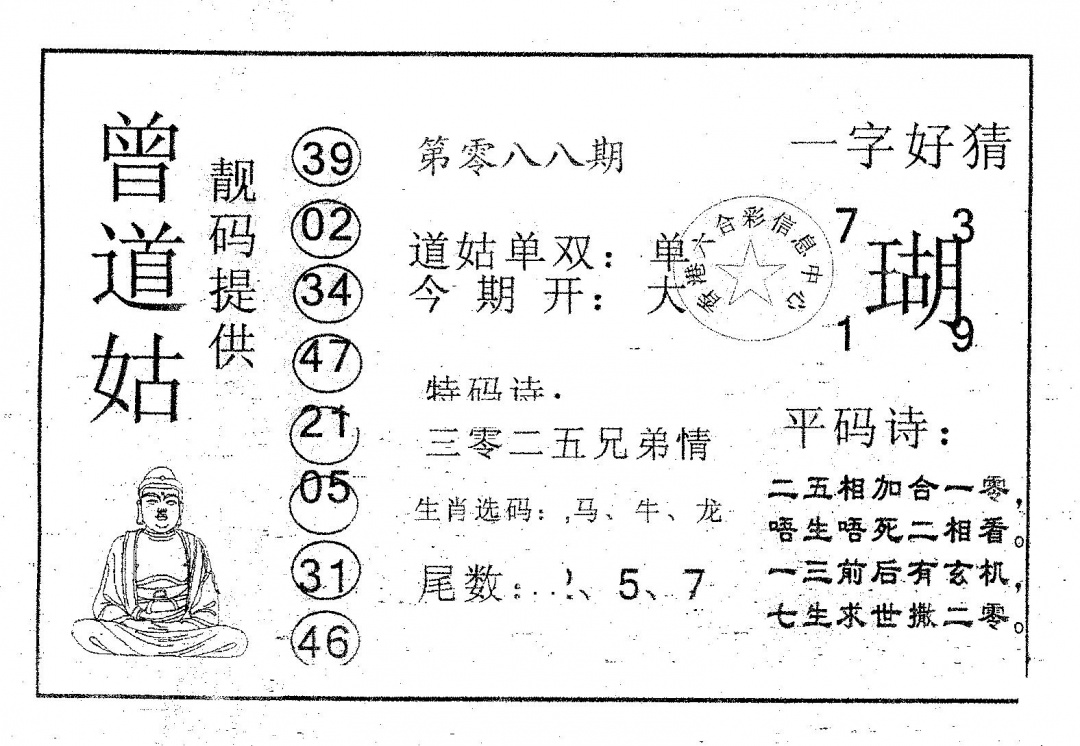 曾道姑
靓码提供
39
02
34
47
21
05
31
46
第零八八期
道姑单双：单
今期开：大
特码诗：
三零二五兄弟情
生肖选码：,马、牛、龙
尾数：、5、7
香港六合彩信息中心
一字好猜
7 3
瑚
1 9
平码诗：
二五相加合一零，
唔生唔死二相看。
一三前后有玄机，
七生求世撒二零。